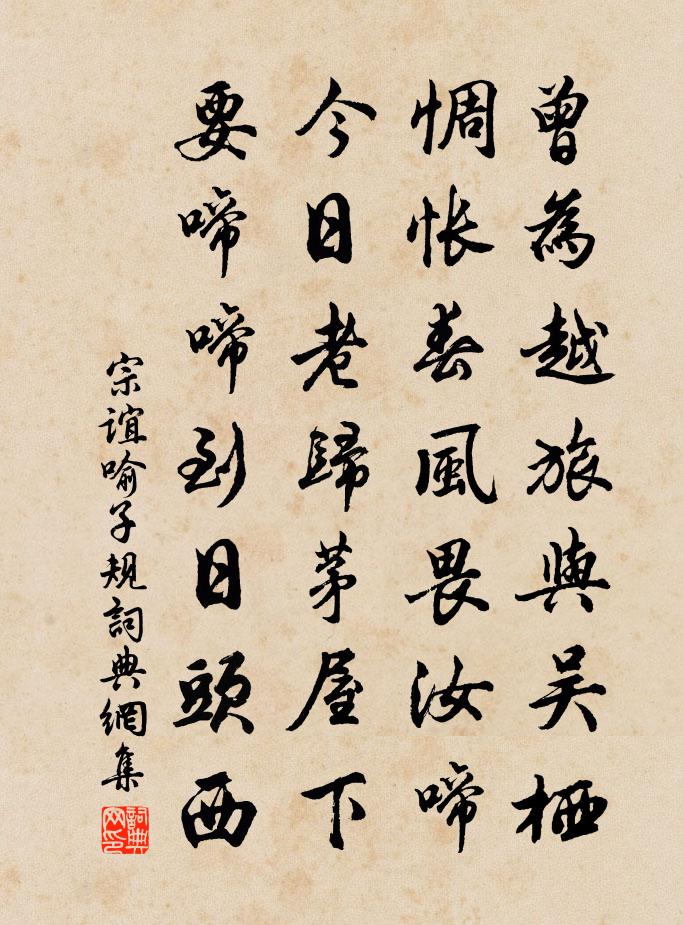 曾為越旅與吴栖
惆悵春風畏汝啼
今日老歸茅屋下
要啼啼到日頭西
宗誼喻子規詞典網集
詞典網印